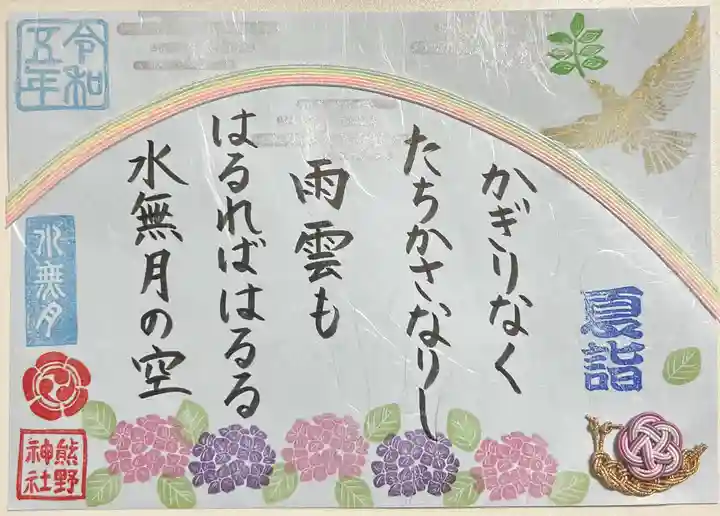 かぎりなく
たちかさなりし
雨雲も
はるればはるる
水無月の空
夏詣
令和
五年
水無月
熊野
神社